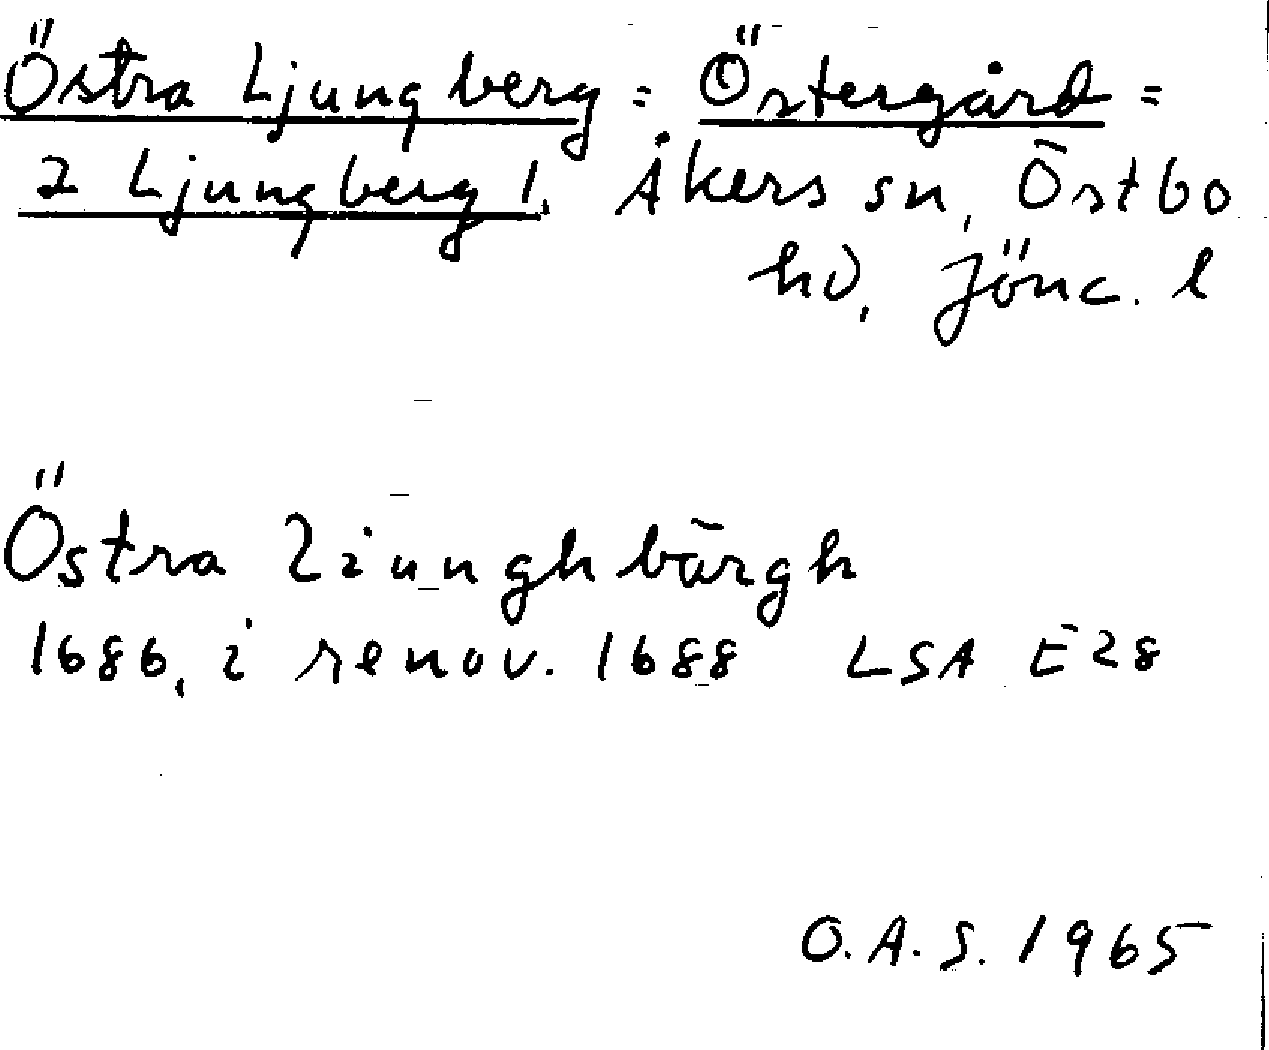 Östra Ljungberg = Östergård =
2 Ljungberg 1. Åkers sn, Östbo
hd, Jönc. l
Östra Liunghbärgh
1686, i renov. 1688 LSA E28
O.A.S. 1965